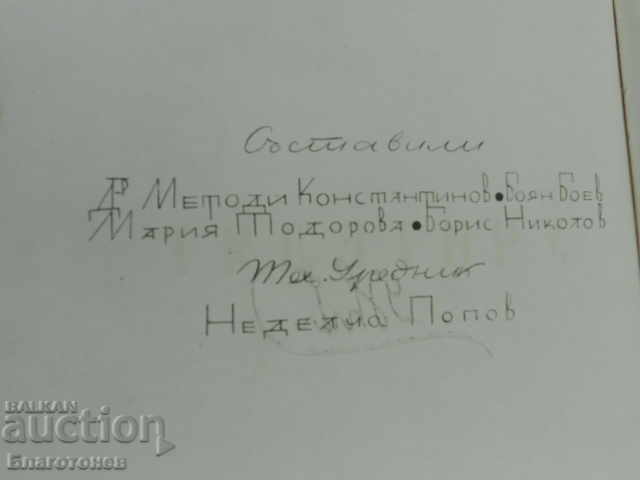 Съставили
Д-Р Методи Константинов • Боян Боев
Мария Тодорова • Борис Николов
Тех. Уредник
Неделчо Попов
BALKAN
auction
Благотонев